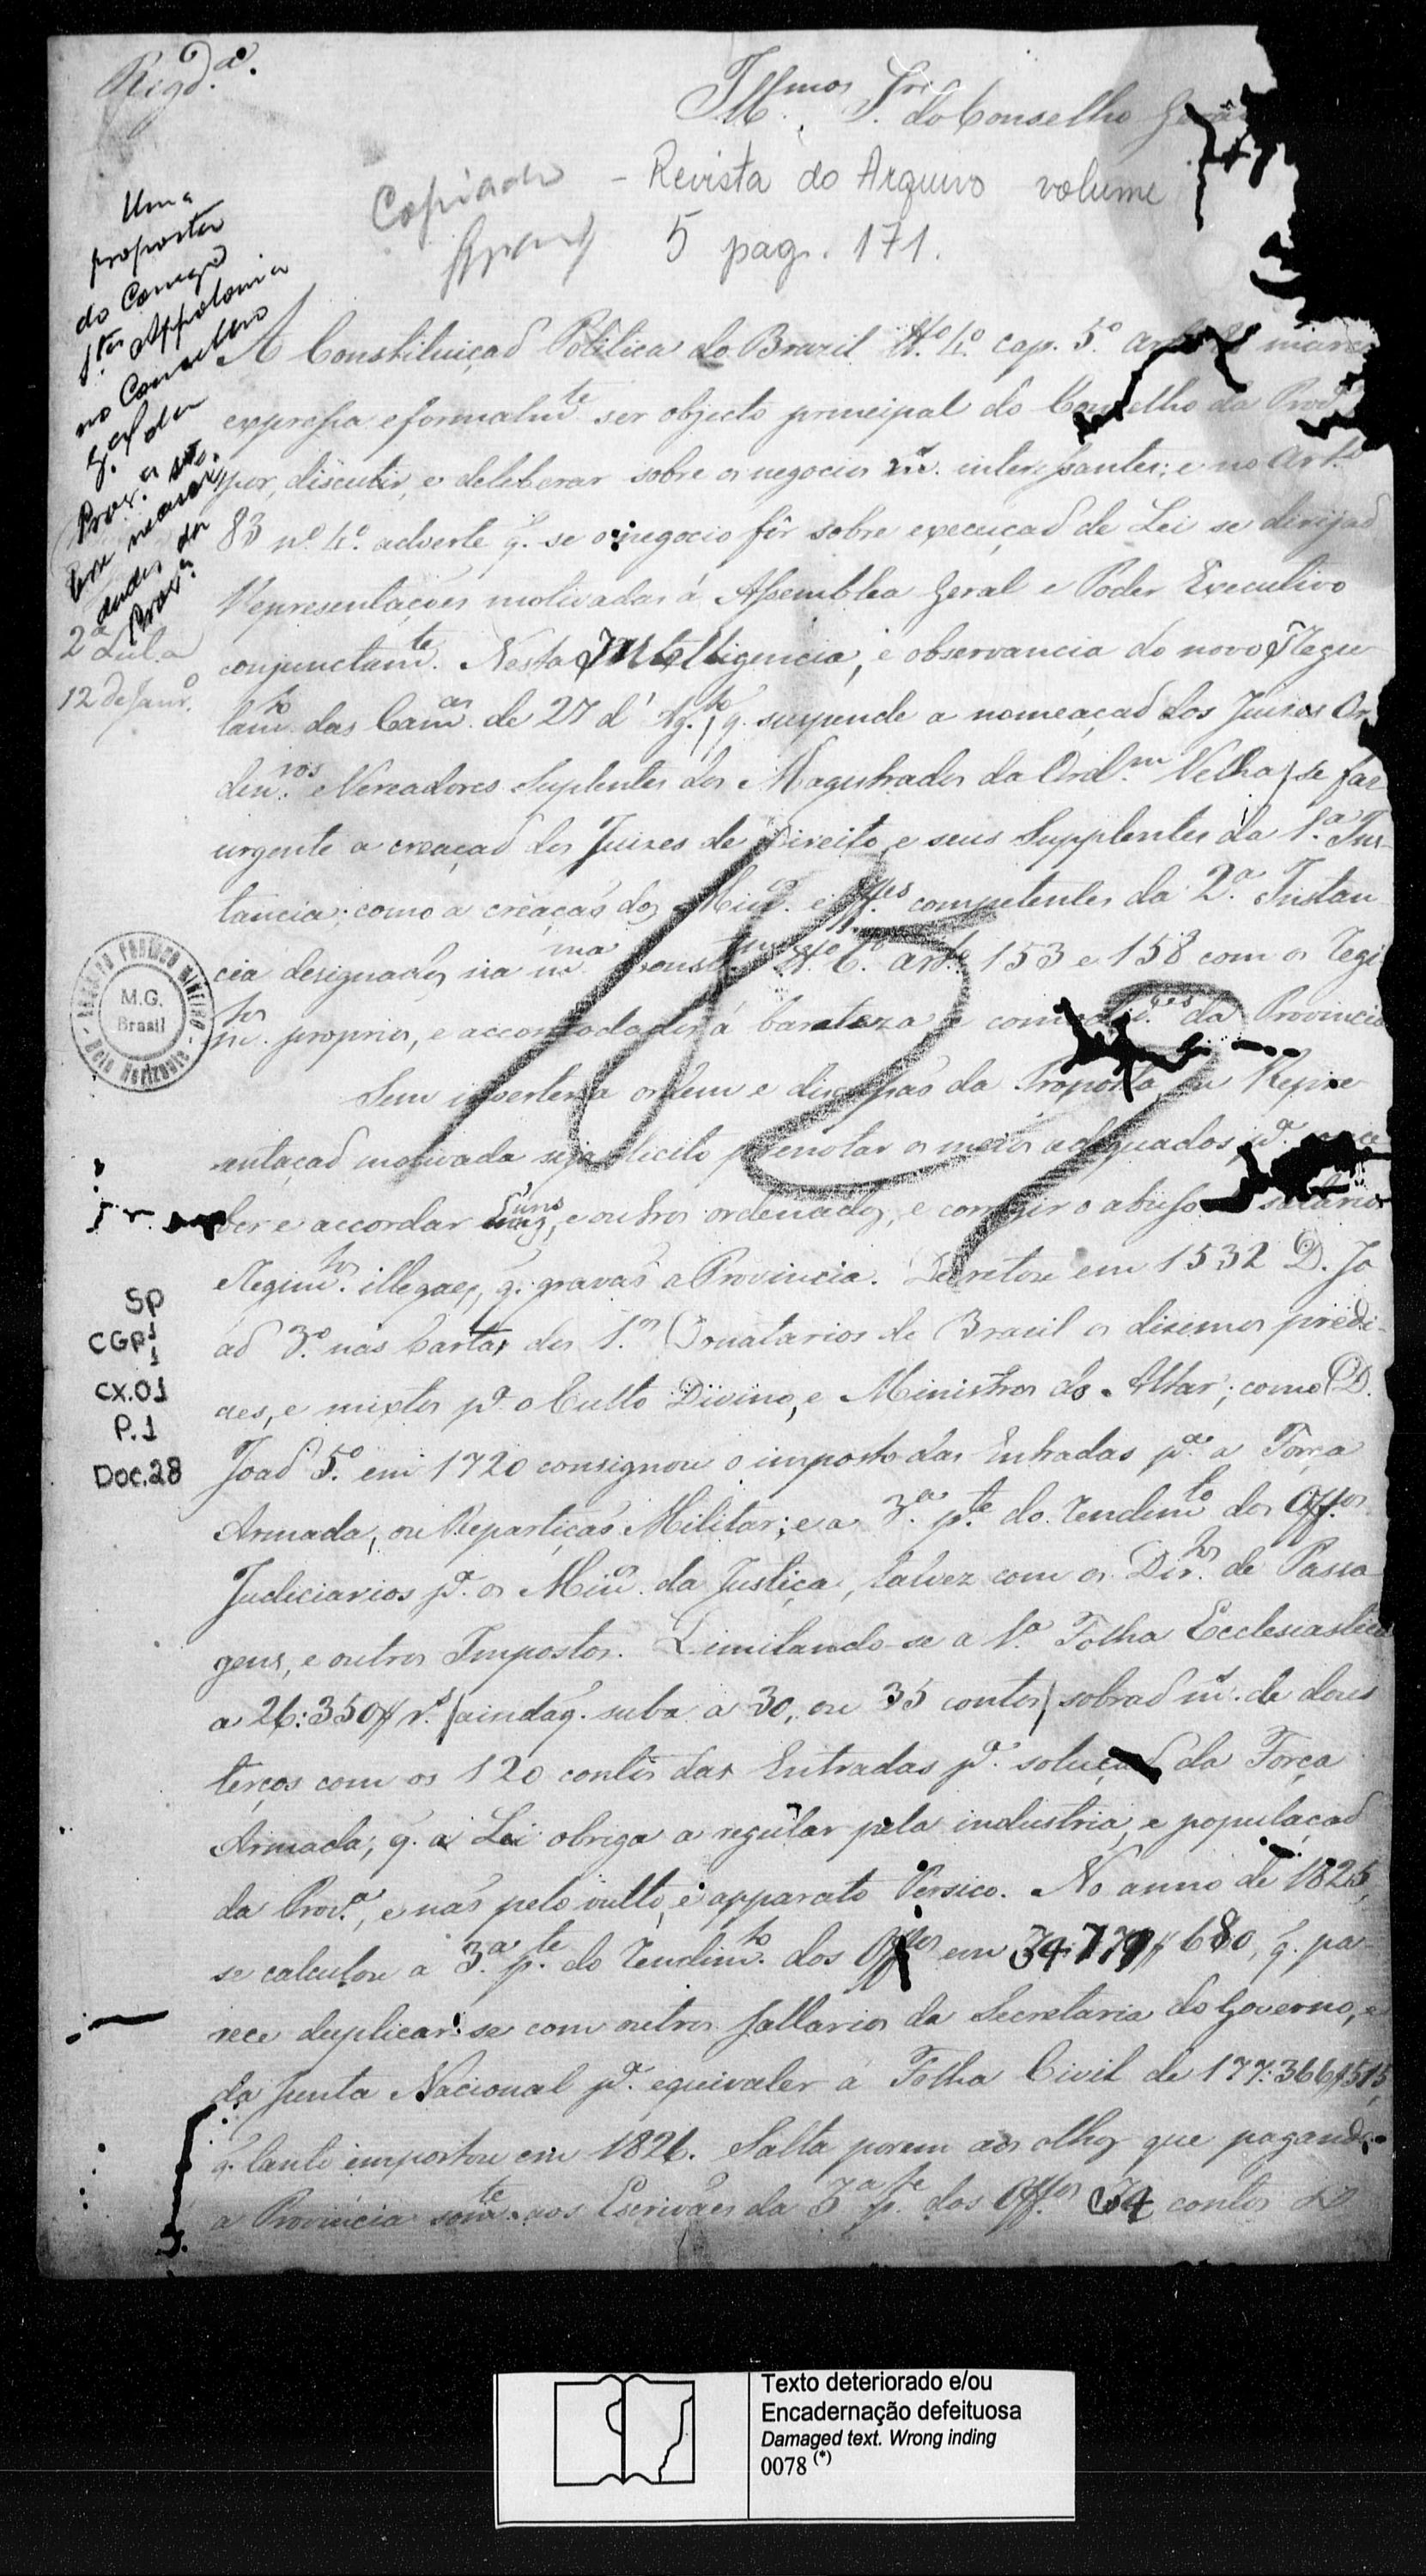 Regd.ª
Ill.mos Snr.s do Conselho Geral
Copiado – Revista do Arquivo volume
5 pag. 171.
Uma
proposta
do Conego
Appolonia
no Conselho
G.al da
Prov.ª sobre
necessi
dades da
Prov.ª
2ª Leit.ª
12 de Janr.º
A Constituiçaõ Politica do Brazil tt.º 4.º cap. 5.º art. marca
expressa e formalm.te ser objecto principal do Conselho da Prov.ª
por, discutir, e deleberar sobre os negocios m.s interessantes; e no Art.º
83 n.º 4.º adverte q. se o negocio fôr sobre execuçaõ de Lei se dirijaõ
Representaçoens motivadas á Assemblea Geral e Poder Executivo
conjunctam.te. Nesta Intelligencia, e observancia do novo Regu
lam.to das Cam.as de 27 d'Ag.to, q. suspende a nomeaçaõ dos Juizes Or
din.ros e Vereadores Suplentes dos Magistrados da Ord.m Velha) se faz
urgente a creaçaõ dos Juizes de Direito, e seus Supplentes da 1.ª Ins
tancia; como a creaçaõ dos Min.os e Off.es competentes da 2.ª Instan
cia designados na m.ma Const.m tt.º 6.º art.º 153 e 158 com os Regi
m.tos proprios, e accommodados á barateza e da Provincia
Sem inverter a ordem e discussaõ da Proposta, ou Repre
sentaçaõ motivada seja licito prenotar os meios adequados p.ª
ber e accordar uns, e outros ordenados, e corrigir o abuso salarios
Regim.tos illegaes, q. gravaõ a Provincia. Decretou em 1532 D. Jo
aõ 3.º nas Cartas dos 1.os Donatarios do Brasil os dizemos predi
aes, e mixtos p.ª o Culto Divino, e Ministros do Altar; como D.
Joaõ 5.º em 1720 consignou o imposto das Entradas p.ª a Força
Armada, ou Repartiçaõ Militar; e a 3.ª p.te do rendim.to dos Off.os
Judiciarios p.ª os Min.os da Justiça, talvez com os Dir.tos de Passa
gens, e outros Impostos. Limitando-se a 1.ª Folha Ecclesiastica
a 26:350$ r.s (ainda q. suba a 30, ou 35 contos) sobraõ m.s de dous
terços com os 120 contos das Entradas p.ª soluçaõ da Força
Armada, q. a Lei obriga a regular pela industria, e populaçaõ
da Prov.ª, e naõ pelo vulto, e apparato Persico. No anno de 1825
se calculou a 3.ª p.te do rendim.to dos Off.os em 34:779$680, q. pa
rece duplicar-se com outros sallarios da Secretaria do Governo, e
da Junta Nacional p.ª equivaler a Folha Civil de 177:366$515
q. tanto importou em 1826. Salta porem aos olhos que pagando
a Provincia som.te aos Escrivães da 3.ª p.te dos Off.os 34 contos
ARQUIVO PUBLICO MINEIRO
M.G.
Brasil
Belo Horizonte
SP
CGP1
1
CX.01
P.1
Doc.28
Texto deteriorado e/ou
Encadernação defeituosa
Damaged text. Wrong inding
0078 (*)